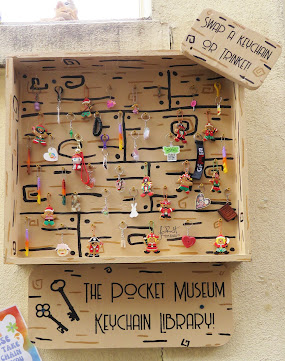 SWAP A KEYCHAIN
OR TRINKET!
THE POCKET MUSEUM
KEYCHAIN LIBRARY!
TAKE